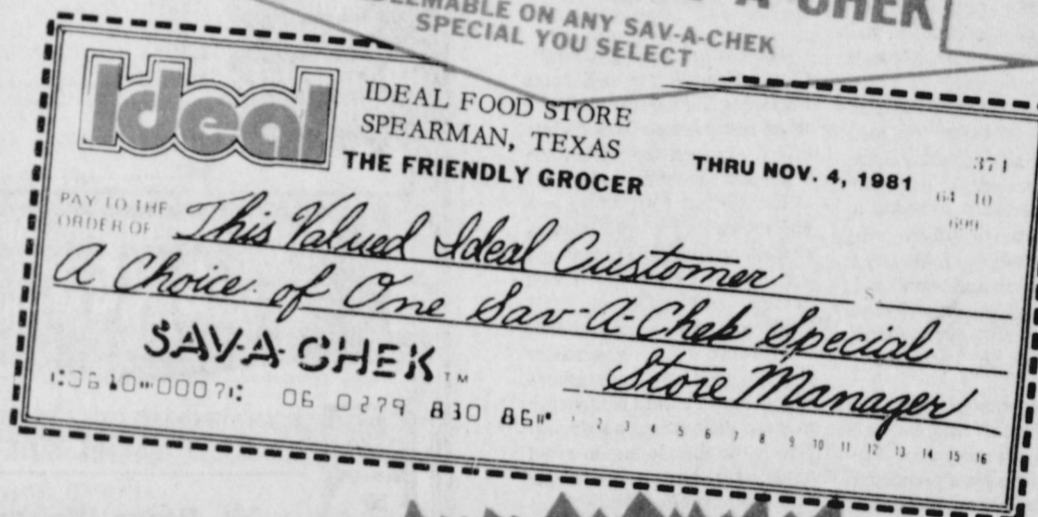 A-CHEK
ON ANY SAV-A-CHEK
SPECIAL YOU SELECT
Ideal
IDEAL FOOD STORE
SPEARMAN, TEXAS
THE FRIENDLY GROCER
THRU NOV. 4, 1981
374
64 10
699
PAY TO THE
ORDER OF This Valued Ideal Customer $
A Choice of One Sav-A-Chek Special
SAV-A-CHEK TM
Store Manager
⑆0610⑈0007⑆ 06 0279 830 86⑈ 1 2 3 4 5 6 7 8 9 10 11 12 13 14 15 16